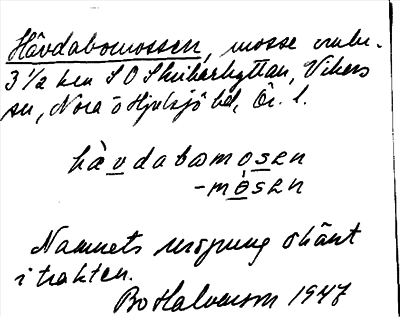 Håvdabomossen, mosse omkr.
3 1/2 km S O Skrikarhyttan, Vikers
sn, Nora o Hjulsjö bd, Ör. l.
hàvdabomosen
-mósen
Namnets ursprung okänt
i trakten.
Bo Halvarson 1947